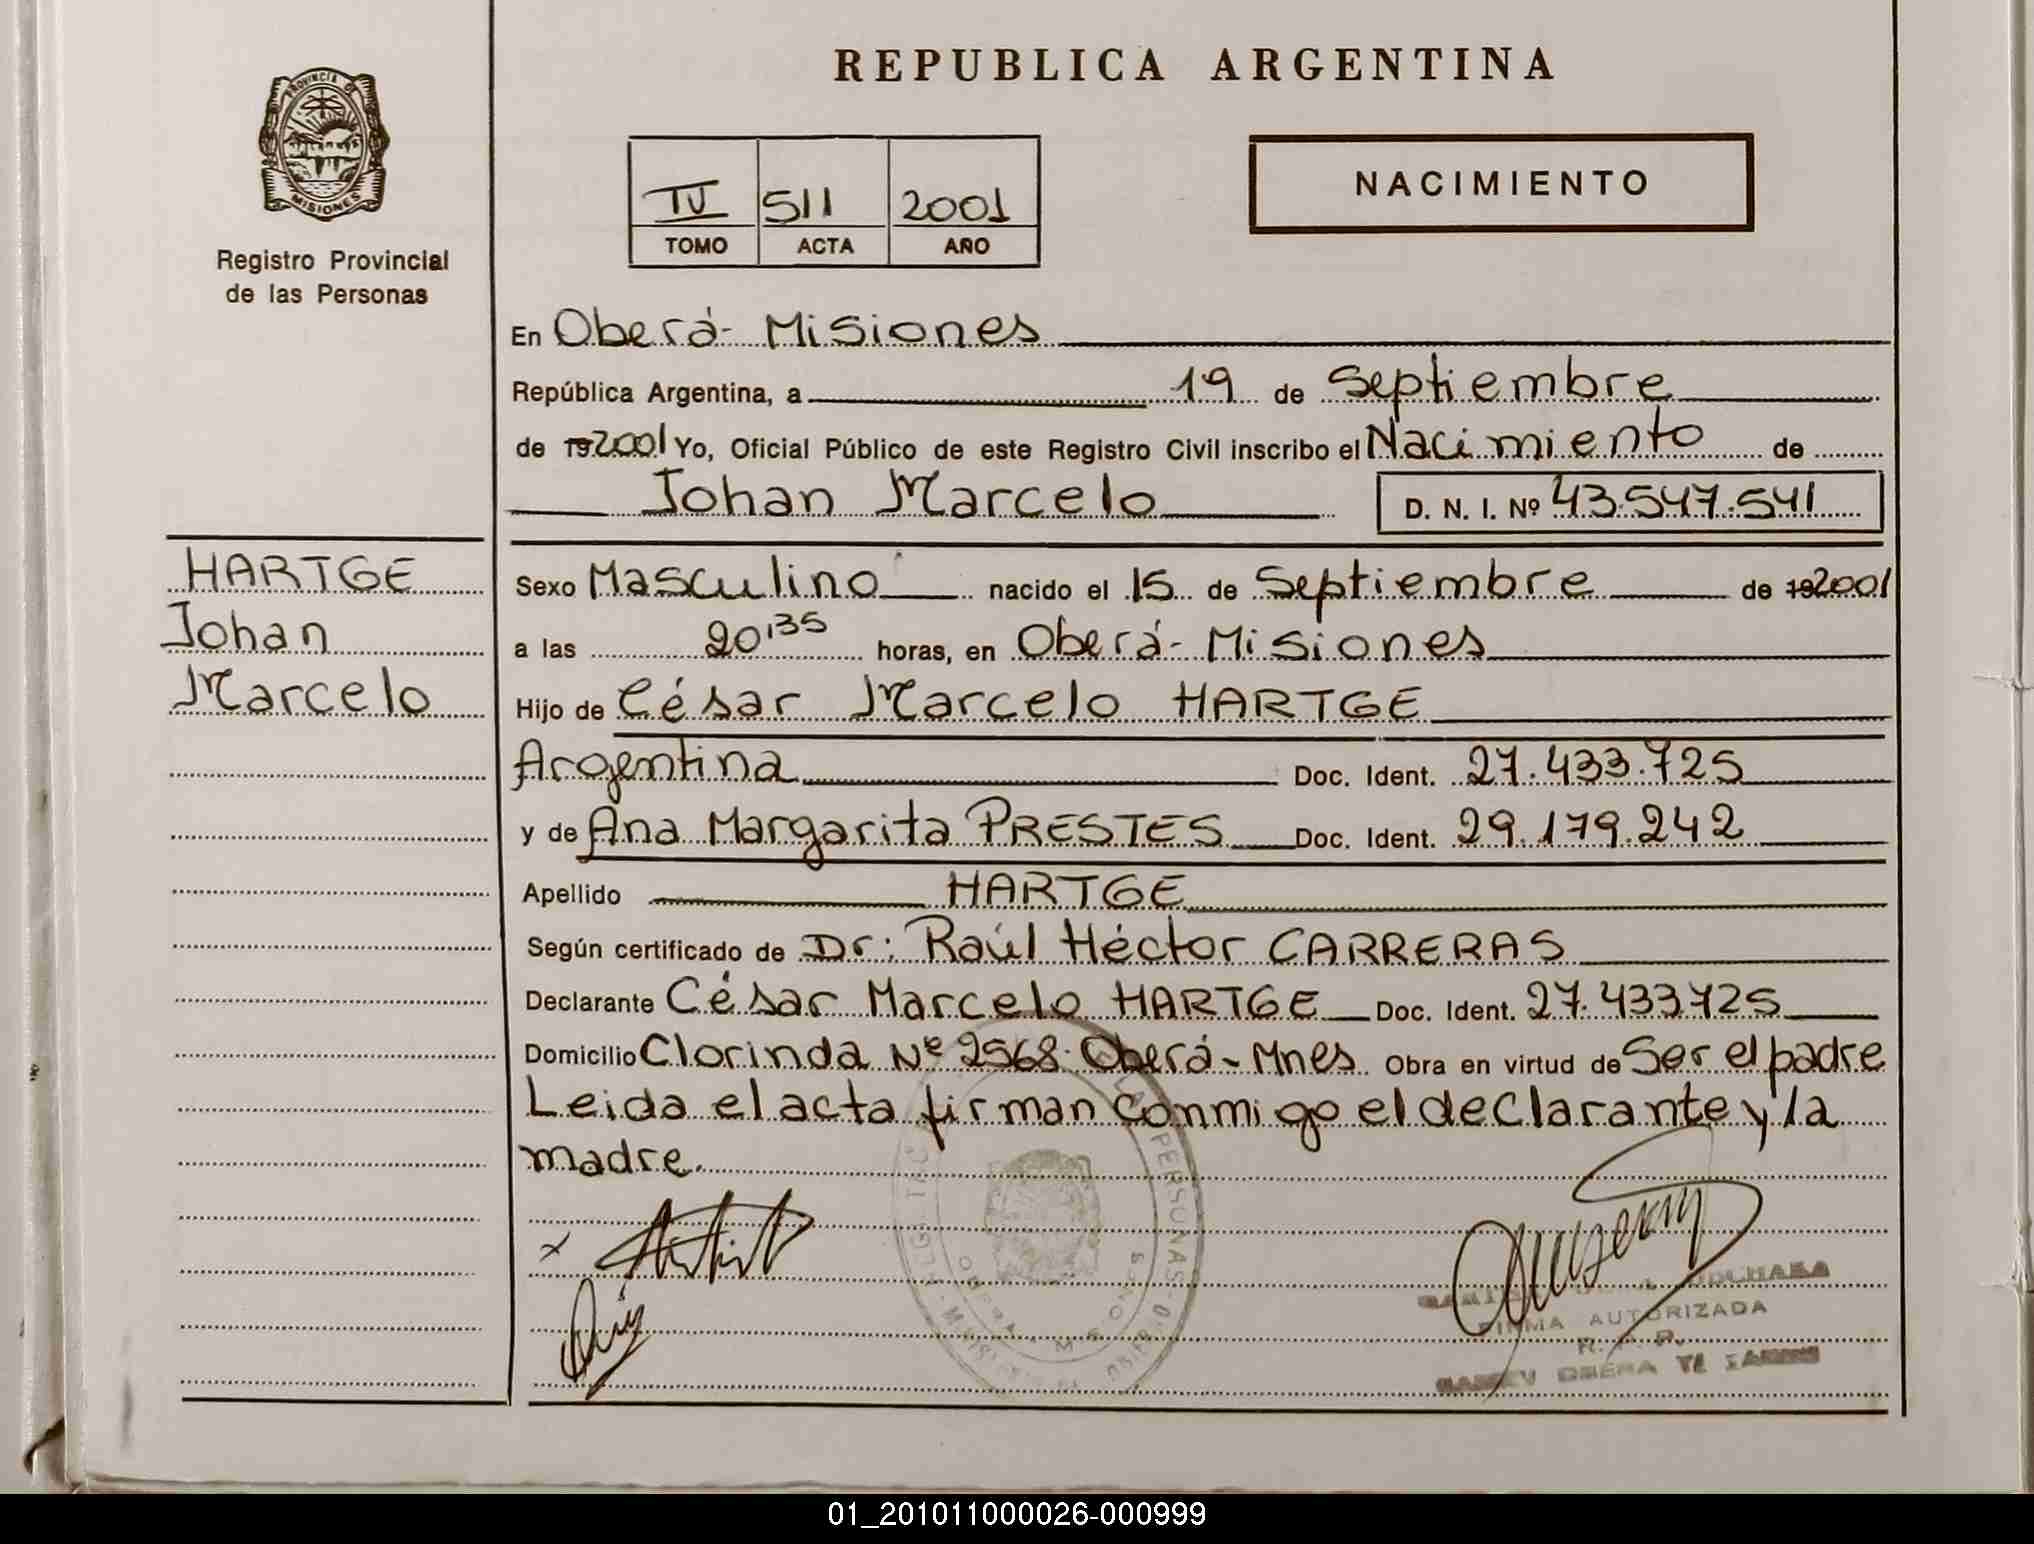 REPUBLICA ARGENTINA
PROVINCIA DE
MISIONES
Registro Provincial
de las Personas
IV 511 2001
TOMO ACTA AÑO
NACIMIENTO
En Oberá- Misiones
República Argentina, a 19 de Septiembre
de 19 2001 Yo, Oficial Público de este Registro Civil inscribo el Nacimiento de
Johan Marcelo D. N. I. Nº 43.547.541
HARTGE
Johan
Marcelo
Sexo Masculino nacido el 15 de Septiembre de 19 2001
a las 20,35 horas, en Oberá- Misiones
Hijo de César Marcelo HARTGE
Argentina Doc. Ident. 27.433.725
y de Ana Margarita PRESTES Doc. Ident. 29.179.242
Apellido HARTGE
Según certificado de Dr: Raúl Héctor CARRERAS
Declarante César Marcelo HARTGE Doc. Ident. 27.433725
Domicilio Clorinda Nº 2568. Oberá- Mnes Obra en virtud de Ser el padre
Leida el acta firman conmigo el declarante y la
madre.
PERSONAS
OBERA
FIRMA AUTORIZADA
OBERA
01_201011000026-000999